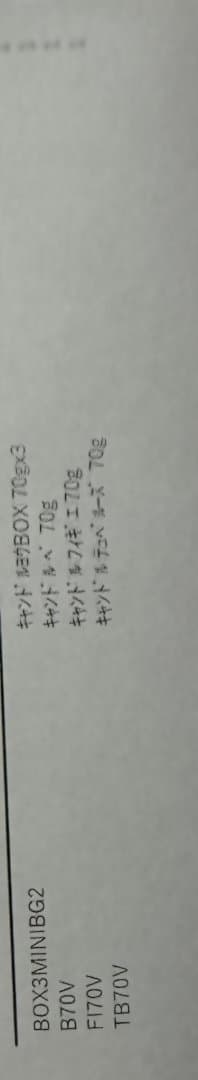 BOX3MINIBG2 ｷｬﾝﾄﾞﾙﾖｳBOX 70gx3
B70V ｷｬﾝﾄﾞﾙ ﾍﾞ 70g
FI70V ｷｬﾝﾄﾞﾙ ﾌｨｷﾞｴ 70g
TB70V ｷｬﾝﾄﾞﾙ ﾃｭﾍﾞﾙｰｽﾞ 70g